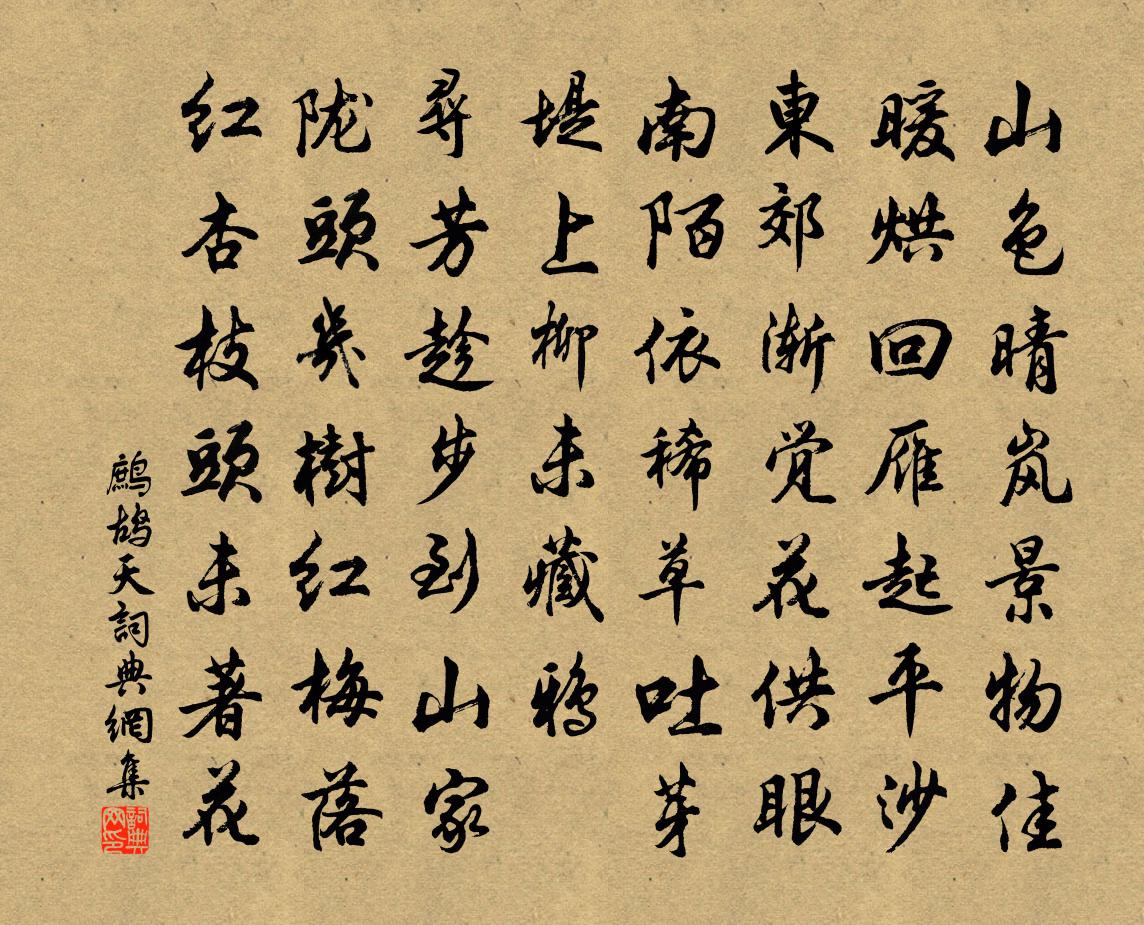 山色晴岚景物佳
暖烘回雁起平沙
東郊渐觉花供眼
南陌依稀草吐芽
堤上柳未藏鸦
尋芳趁步到山家
陇頭幾樹红梅落
红杏枝頭未著花
鹧鸪天詞典網集
詞典网印